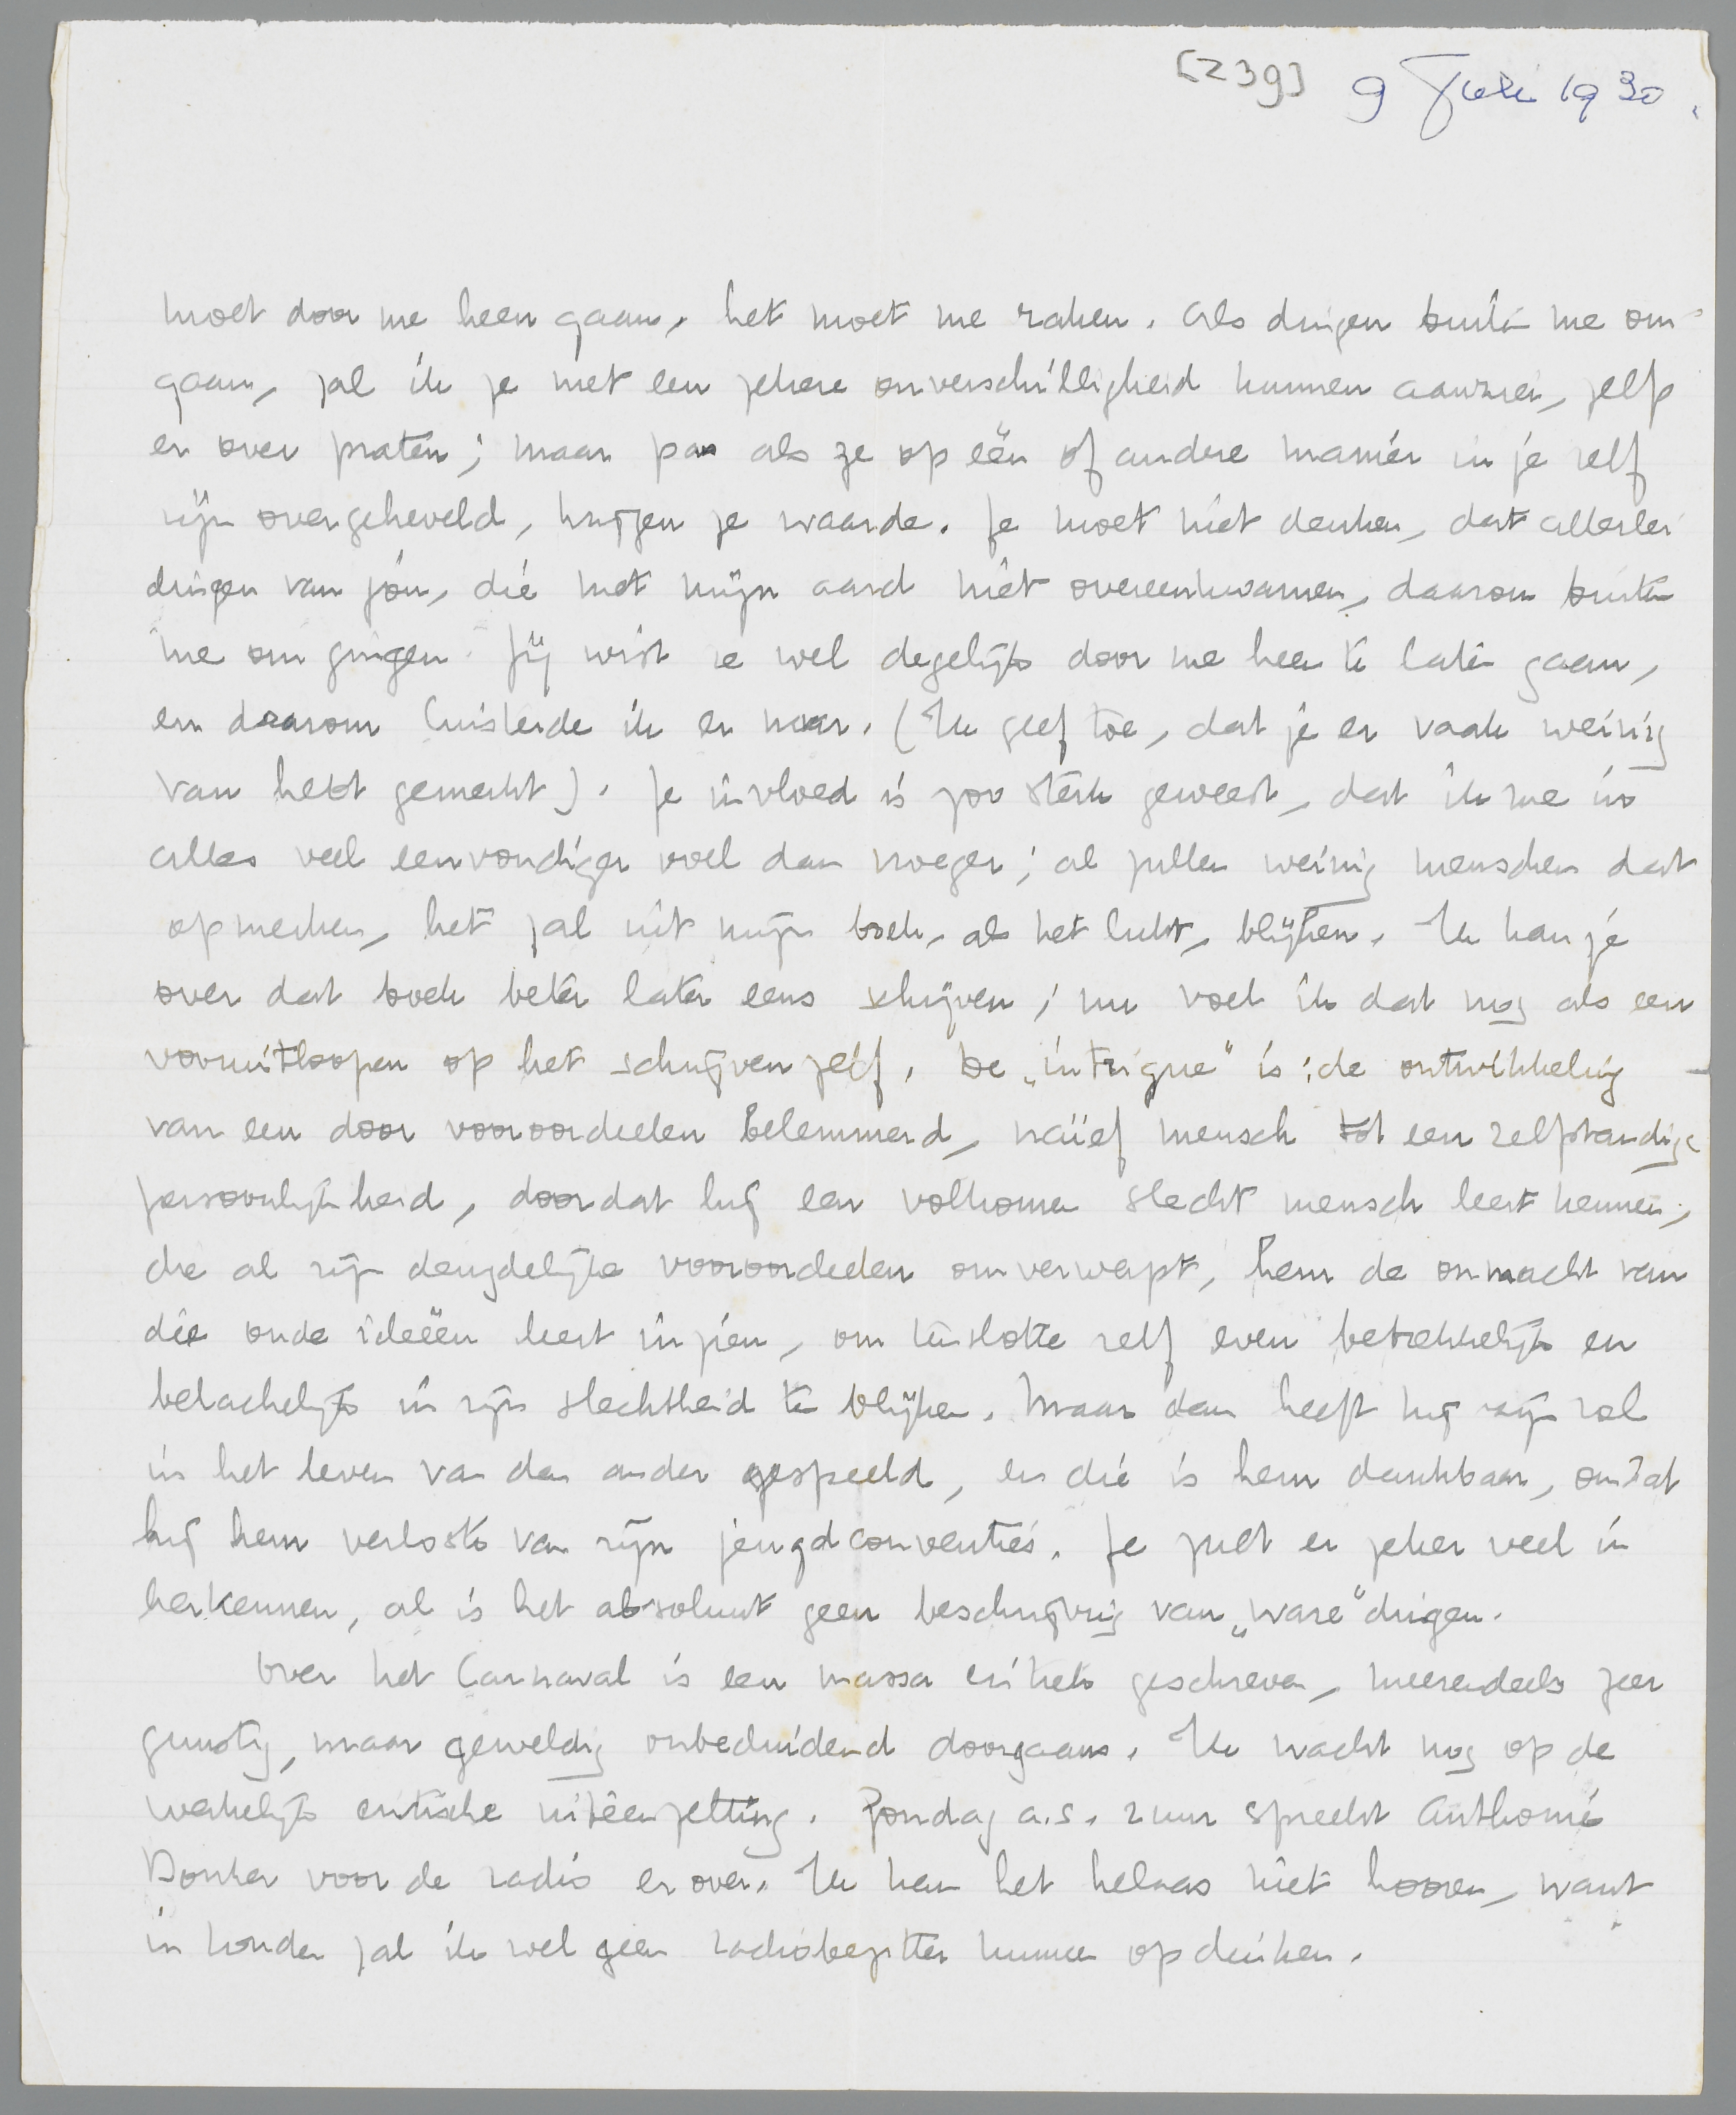 [239] 9 Juli 1930.
moet door me heen gaan, het moet me raken. Als dingen buiten me om
gaan, zal ik ze met een zekere onverschilligheid kunnen aanzien, zelfs
er over praten; maar pas als ze op één of andere manier in je zelf
zijn overgeheveld, krijgen ze waarde. Je moet niet denken, dat allerlei
dingen van jóu, die met mijn aard niet overeenkwamen, daarom buiten
me om gingen. Jij wist ze wel degelijk door me heen te laten gaan,
en daarom luisterde ik er naar. (Ik geef toe, dat je er vaak weinig
van hebt gemerkt). Je invloed is zoo sterk geweest, dat ik me in
alles veel eenvoudiger voel dan vroeger; al zullen weinig menschen dat
opmerken, het zal uit mijn boek, als het lukt, blijken. Ik kan je
over dat boek beter later eens schrijven; nu voel ik dat nog als een
vooruitloopen op het schrijven zelf. De „intrigue" is: de ontwikkeling
van een door vooroordeelen belemmerd, naïef mensch tot een zelfstandige
persoonlijkheid, doordat hij een volkomen slecht mensch leert kennen,
die al zijn deugdelijke vooroordeelen omverwerpt, hem de onmacht van
die oude ideeën leert inzien, om tenslotte zelf even betrekkelijk en
belachelijk in zijn slechtheid te blijken. Maar dan heeft hij zijn rol
in het leven van den ander gespeeld, en die is hem dankbaar, omdat
hij hem verloste van zijn jeugdconventies. Je zult er zeker veel in
herkennen, al is het absoluut geen beschrijving van „ware" dingen.
Over het Carnaval is een massa critiek geschreven, meerendeels zeer
gunstig, maar geweldig onbeduidend doorgaans. Ik wacht nog op de
werkelijk critische uitéénzetting. Zondag a.s. 2 uur spreekt Anthonie
Donker voor de radio er over. Ik kan het helaas niet hooren, want
in Londen zal ik wel geen radiobezitter kunnen opduiken.